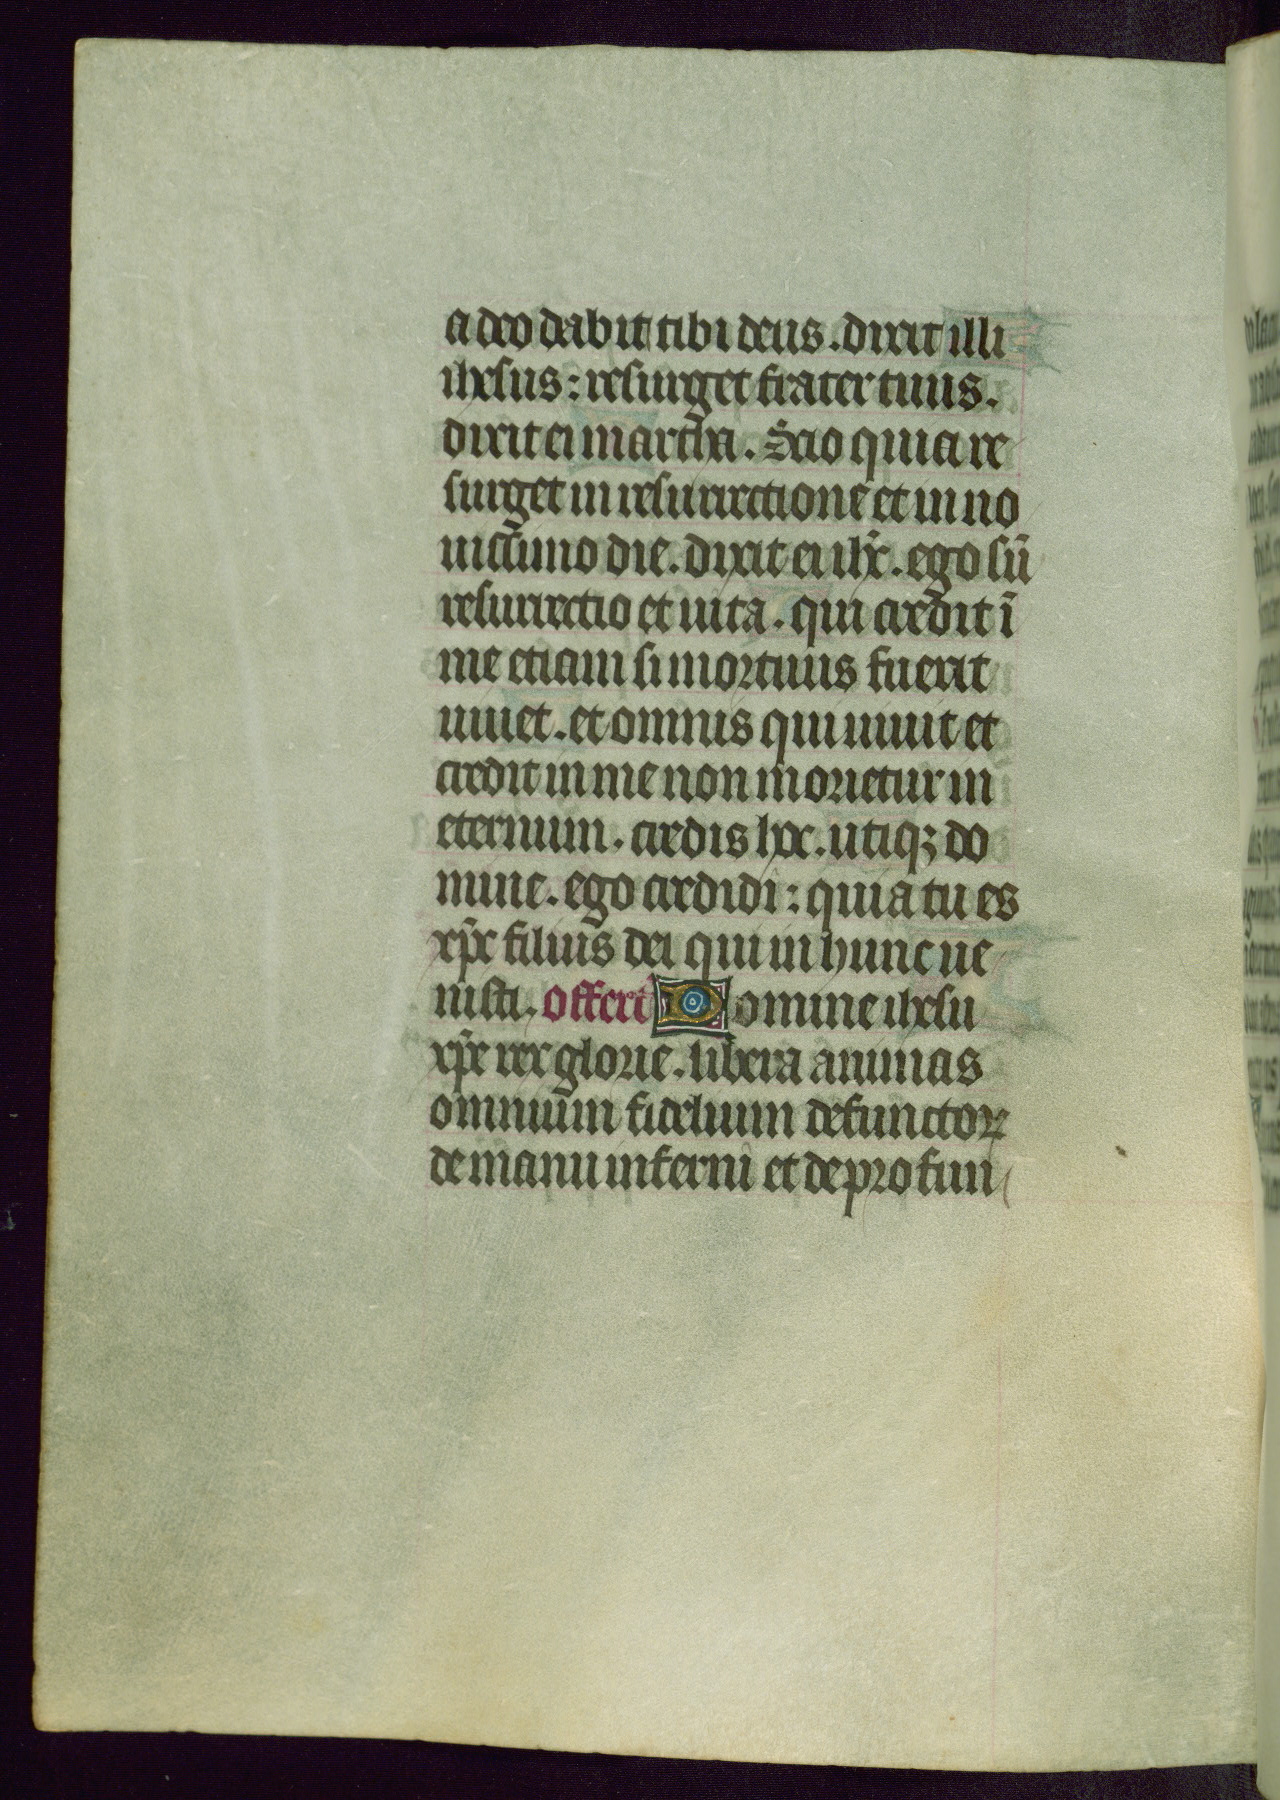 a deo dabit tibi deus. dixit illi
ihesus: resurget frater tuus.
dixit ei martha. Scio quia re
surget in resurrectione et in no
uissimo die. dixit ei ihc̄. ego sū
resurrectio et uita. qui credit ī
me etiam si mortuus fuerit
uiuet. et omnis qui uiuit et
credit in me non morietur in
eternum. credis hoc. utiqꝫ do
mine. ego credidi: quia tu es
xp̄c filius dei qui in hunc ue
nisti. offert̄ Domine ihesu
xp̄e rex glorie. libera animas
omnium fidelium defunctoꝝ
de manu inferni et de profun